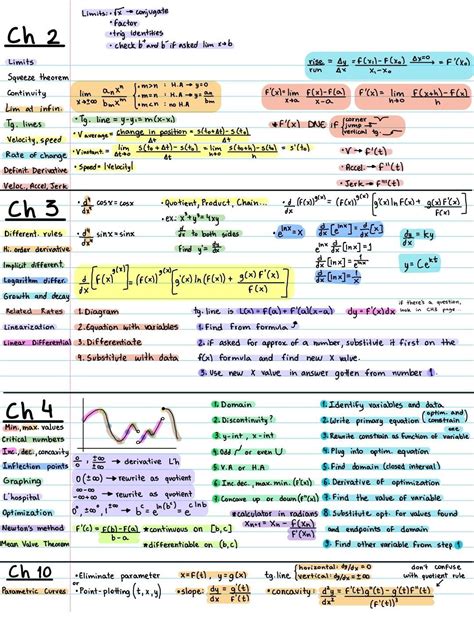 Ch 2
Limits
Squeeze theorem
Continuity
Lim at infin.
Tg. lines
Velocity, speed
Rate of change
Definit. Derivative
Veloc., Accel, Jerk
Limits: • √x → conjugate
• factor
• trig identities
• check b⁺ and b⁻ if asked lim x→b
rise/run = Δy/Δx = f(x₁)-f(x₀)/x₁-x₀ Δx=0 → = F'(x₀)
lim x→±∞ aₙxⁿ/bₘxᵐ
• m>n : H.A → y=0
• m=n : H.A → y= aₙ/bₘ
• m<n : no H.A
F'(x)= lim x→a f(x)-f(a)/x-a
F'(x)= lim h→0 f(x+h)-f(x)/h
• Tg. line = y-y₁=m(x-x₁)
* F'(x) DNE if corner jump vertical tg.
• V average = change in position/Δt = s(t₀+Δt)-s(t₀)/Δt
• V instant. = lim Δt→0 s(t₀+Δt)-s(t₀)/Δt = lim h→0 s(t₀+h)-s(t₀)/h = s'(t₀)
• Speed = |Velocity|
• V → F'(t)
• Accel. → F''(t)
• Jerk → F'''(t)
Ch 3
Different. rules
Hi. order derivative
Implicit different.
Logarithm differ.
Growth and decay
Related Rates
Linearization
Linear Differential
• d⁴/dx⁴ cosx = cosx
• d⁴/dx⁴ sinx = sinx
• Quotient, Product, Chain...
• ex. x³y³=4xy
d/dx to both sides
Find y' = dy/dx
• d/dx (f(x))^g(x) = (f(x))^g(x) [g'(x) ln F(x) + g(x) F'(x)/F(x)]
e^lnx = x
d/dx [e^lnx] = d/dx [x]
e^lnx d/dx [lnx] = 1
x d/dx [lnx] = 1
d/dx [lnx] = 1/x
dy/dx = ky
y = Ce^kt
d/dx [F(x)^g(x)] = (F(x))^g(x) [g'(x) ln(F(x)) + g(x) F'(x)/F(x)]
if there's a question, look in CH3 page.
1. Diagram
2. Equation with variables
3. Differentiate
4. Substitute with data
tg. line is L(x) = F(a)+F'(a)(x-a)
dy = F'(x)dx
1. Find from formula
2. if asked for approx of a number, substitute it first on the
f(x) formula and find new x value.
3. Use new x value in answer gotten from number 1
Ch 4
Min., max. values
Critical numbers
Inc., dec., concavity
Inflection points
Graphing
L'hospital
Optimization
Newton's method
Mean Value Theorem
0/0, ±∞/±∞ → derivative L'h
0(±∞) → rewrite as quotient
∞-∞ → rewrite as quotient
0⁰, ±∞⁰, 1^±∞
F'(c) = f(b)-F(a)/b-a
* continuous on [b,c]
* differentiable on (b,c)
1. Domain
2. Discontinuity?
3. y-int, x-int
4. Odd or even
5. V.A or H.A
6. Inc dec., max. min. (f'(x))
7. Concave up or down (f''(x))
* calculator in radians
Xₙ₊₁ = Xₙ - F(Xₙ)/F'(Xₙ)
1. Identify variables and data
2. Write primary equation (optim. and) constrain one
3. Rewrite constrain as function of variable
4. Plug into optim. equation
5. Find domain (closed interval)
6. Derivative of optimization
7. Find the value of variable
8. Substitute opt. For values found
and endpoints of domain
9. Find other variable from step 1
Ch 10
Parametric Curves
• Eliminate parameter
or
• Point-plotting (t, x, y)
x=F(t), y=g(x)
• slope: dy/dx = g'(t)/F'(t)
tg. line
horizontal: dy/dx = 0
vertical: dx/dy = 0
• concavity: d²y/dx² = F'(t)g''(t)-g'(t)F''(t)/(F'(t))³
don't confuse with quotient rule